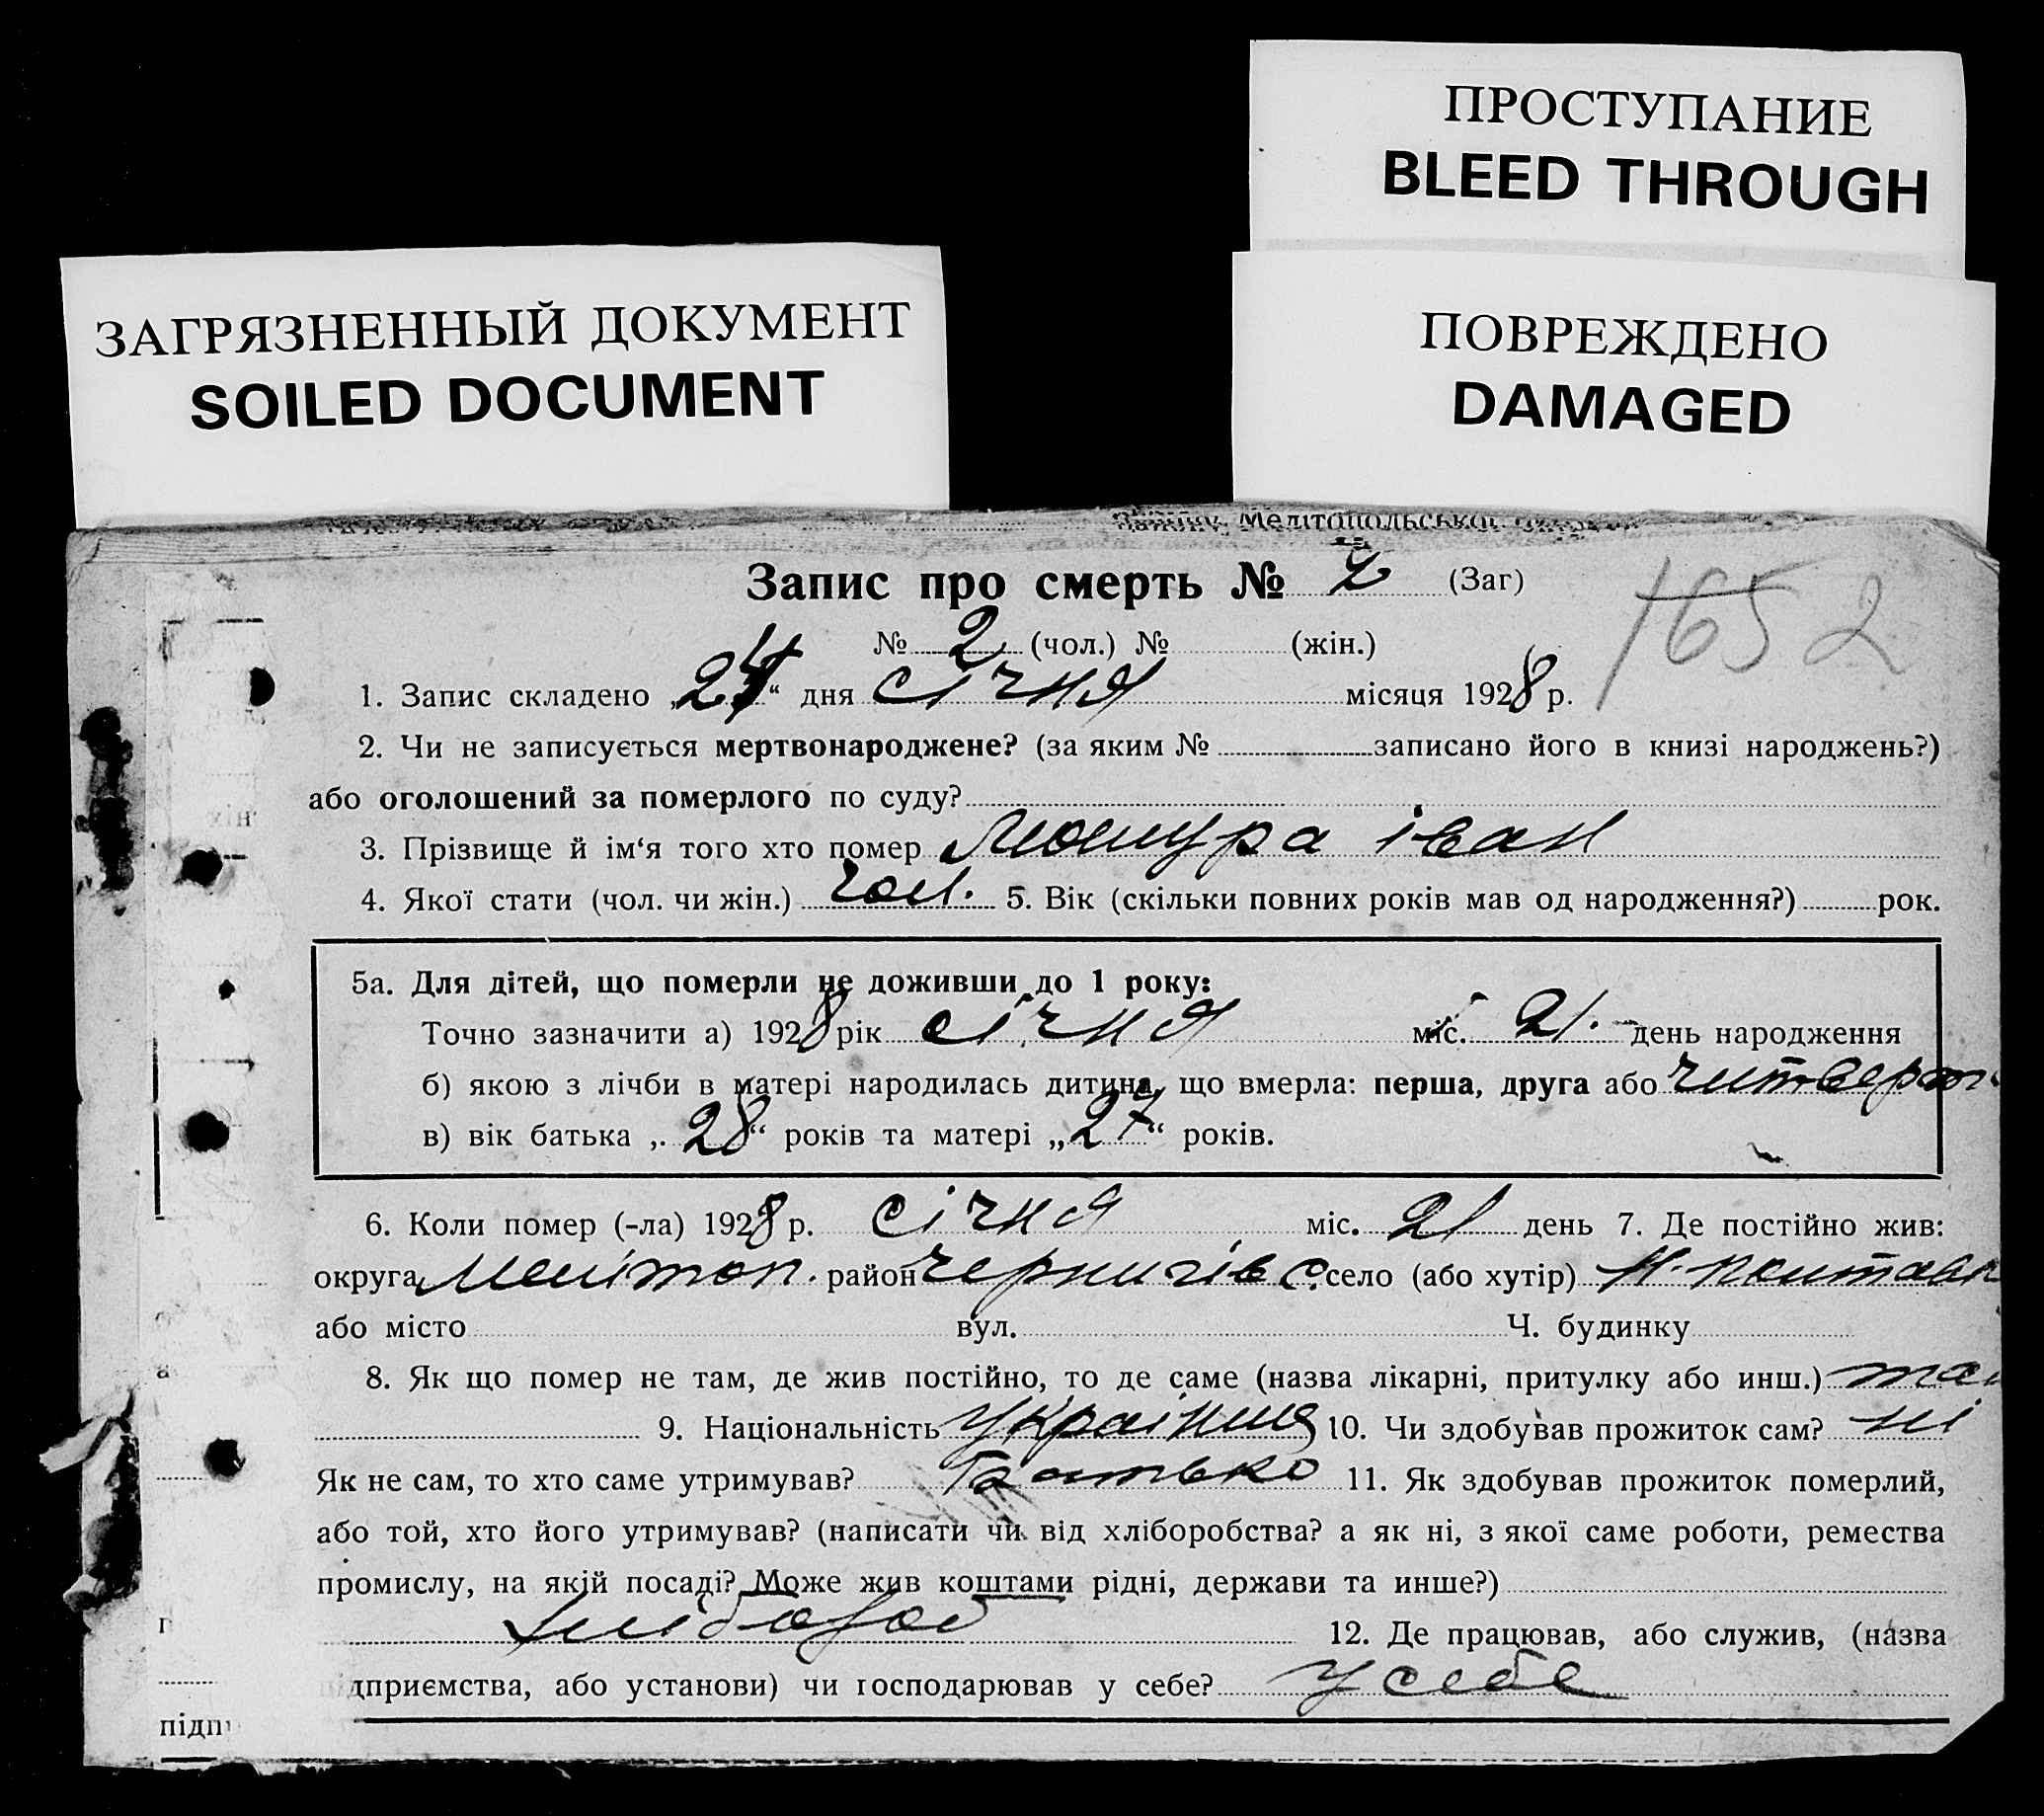 ПРОСТУПАНИЕ
BLEED THROUGH
ЗАГРЯЗНЕННЫЙ ДОКУМЕНТ
SOILED DOCUMENT
ПОВРЕЖДЕНО
DAMAGED
Мелітопольської
Запис про смерть № 2 (Заг)
1652
№ 2 (чол.) № (жін.)
1. Запис складено „24“ дня січня місяця 1928 р.
2. Чи не записується мертвонароджене? (за яким № записано його в книзі народжень?)
або оголошений за померлого по суду?
3. Прізвище й ім‘я того хто помер Мошура Іван
4. Якої стати (чол. чи жін.) чол. 5. Вік (скільки повних років мав од народження?) рок.
5а. Для дітей, що померли не доживши до 1 року:
Точно зазначити а) 1928 рік січня міс. 21. день народження
б) якою з лічби в матері народилась дитина, що вмерла: перша, друга або читверт
в) вік батька „28“ років та матері „27“ років.
6. Коли помер (-ла) 1928 р. січня міс. 21 день 7. Де постійно жив:
округа Мелітоп. район Чернигівс. село (або хутір) Н.
або місто вул. Ч. будинку
8. Як що помер не там, де жив постійно, то де саме (назва лікарні, притулку або инш.) там
9. Національність українц 10. Чи здобував прожиток сам? ні
Як не сам, то хто саме утримував? батько 11. Як здобував прожиток померлий,
або той, хто його утримував? (написати чи від хліборобства? а як ні, з якої саме роботи, ремества
промислу, на якій посаді? Може жив коштами рідні, держави та инше?)
хлібороб 12. Де працював, або служив, (назва
дприємства, або установи) чи господарював у себе? у себе
підп